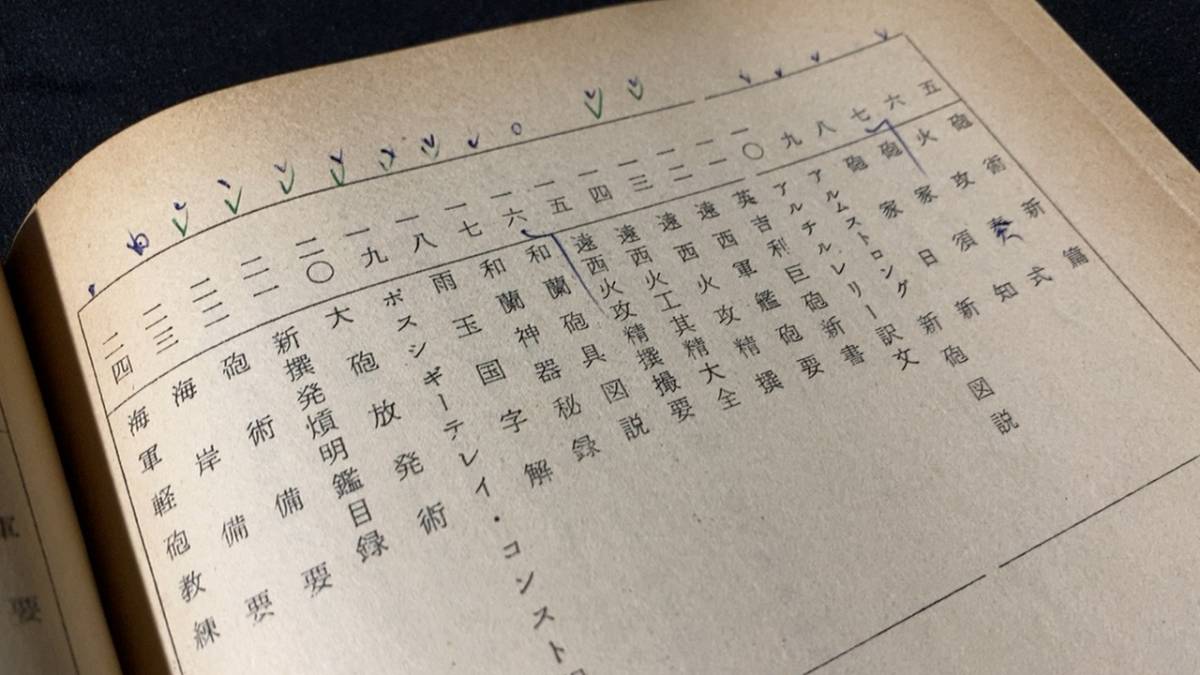 五 砲術新篇
六 火攻奏式
七 砲家須知
八 砲家日新
九 アルムストロング新砲図説
一〇 アルチルレリー訳文
一一 英吉利巨砲新書
一二 遠西軍鑑砲要
一三 遠西火攻精撰
一四 遠西火工其精大全
一五 遠西火攻精撰撮要
一六 和蘭砲具図説
一七 和蘭神器秘録
一八 雨玉国字解
一九 ボスシギーテレイ・コンスト
二〇 大砲放発術
二一 新撰発熕明鑑目録
二二 砲術備要
二三 海岸備要
二四 海軍軽砲教練
要